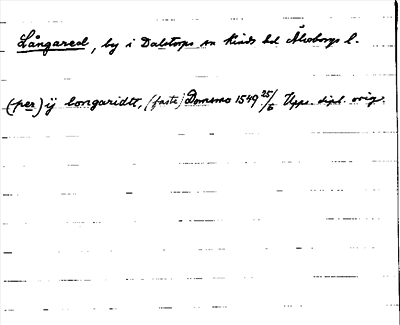 Långared, by i Dalstorps sn Kinds hd Älvsborgs l.
(per) ij longaridt, (faste) Domsmo 1549 25/5 Upps. dipl. orig.